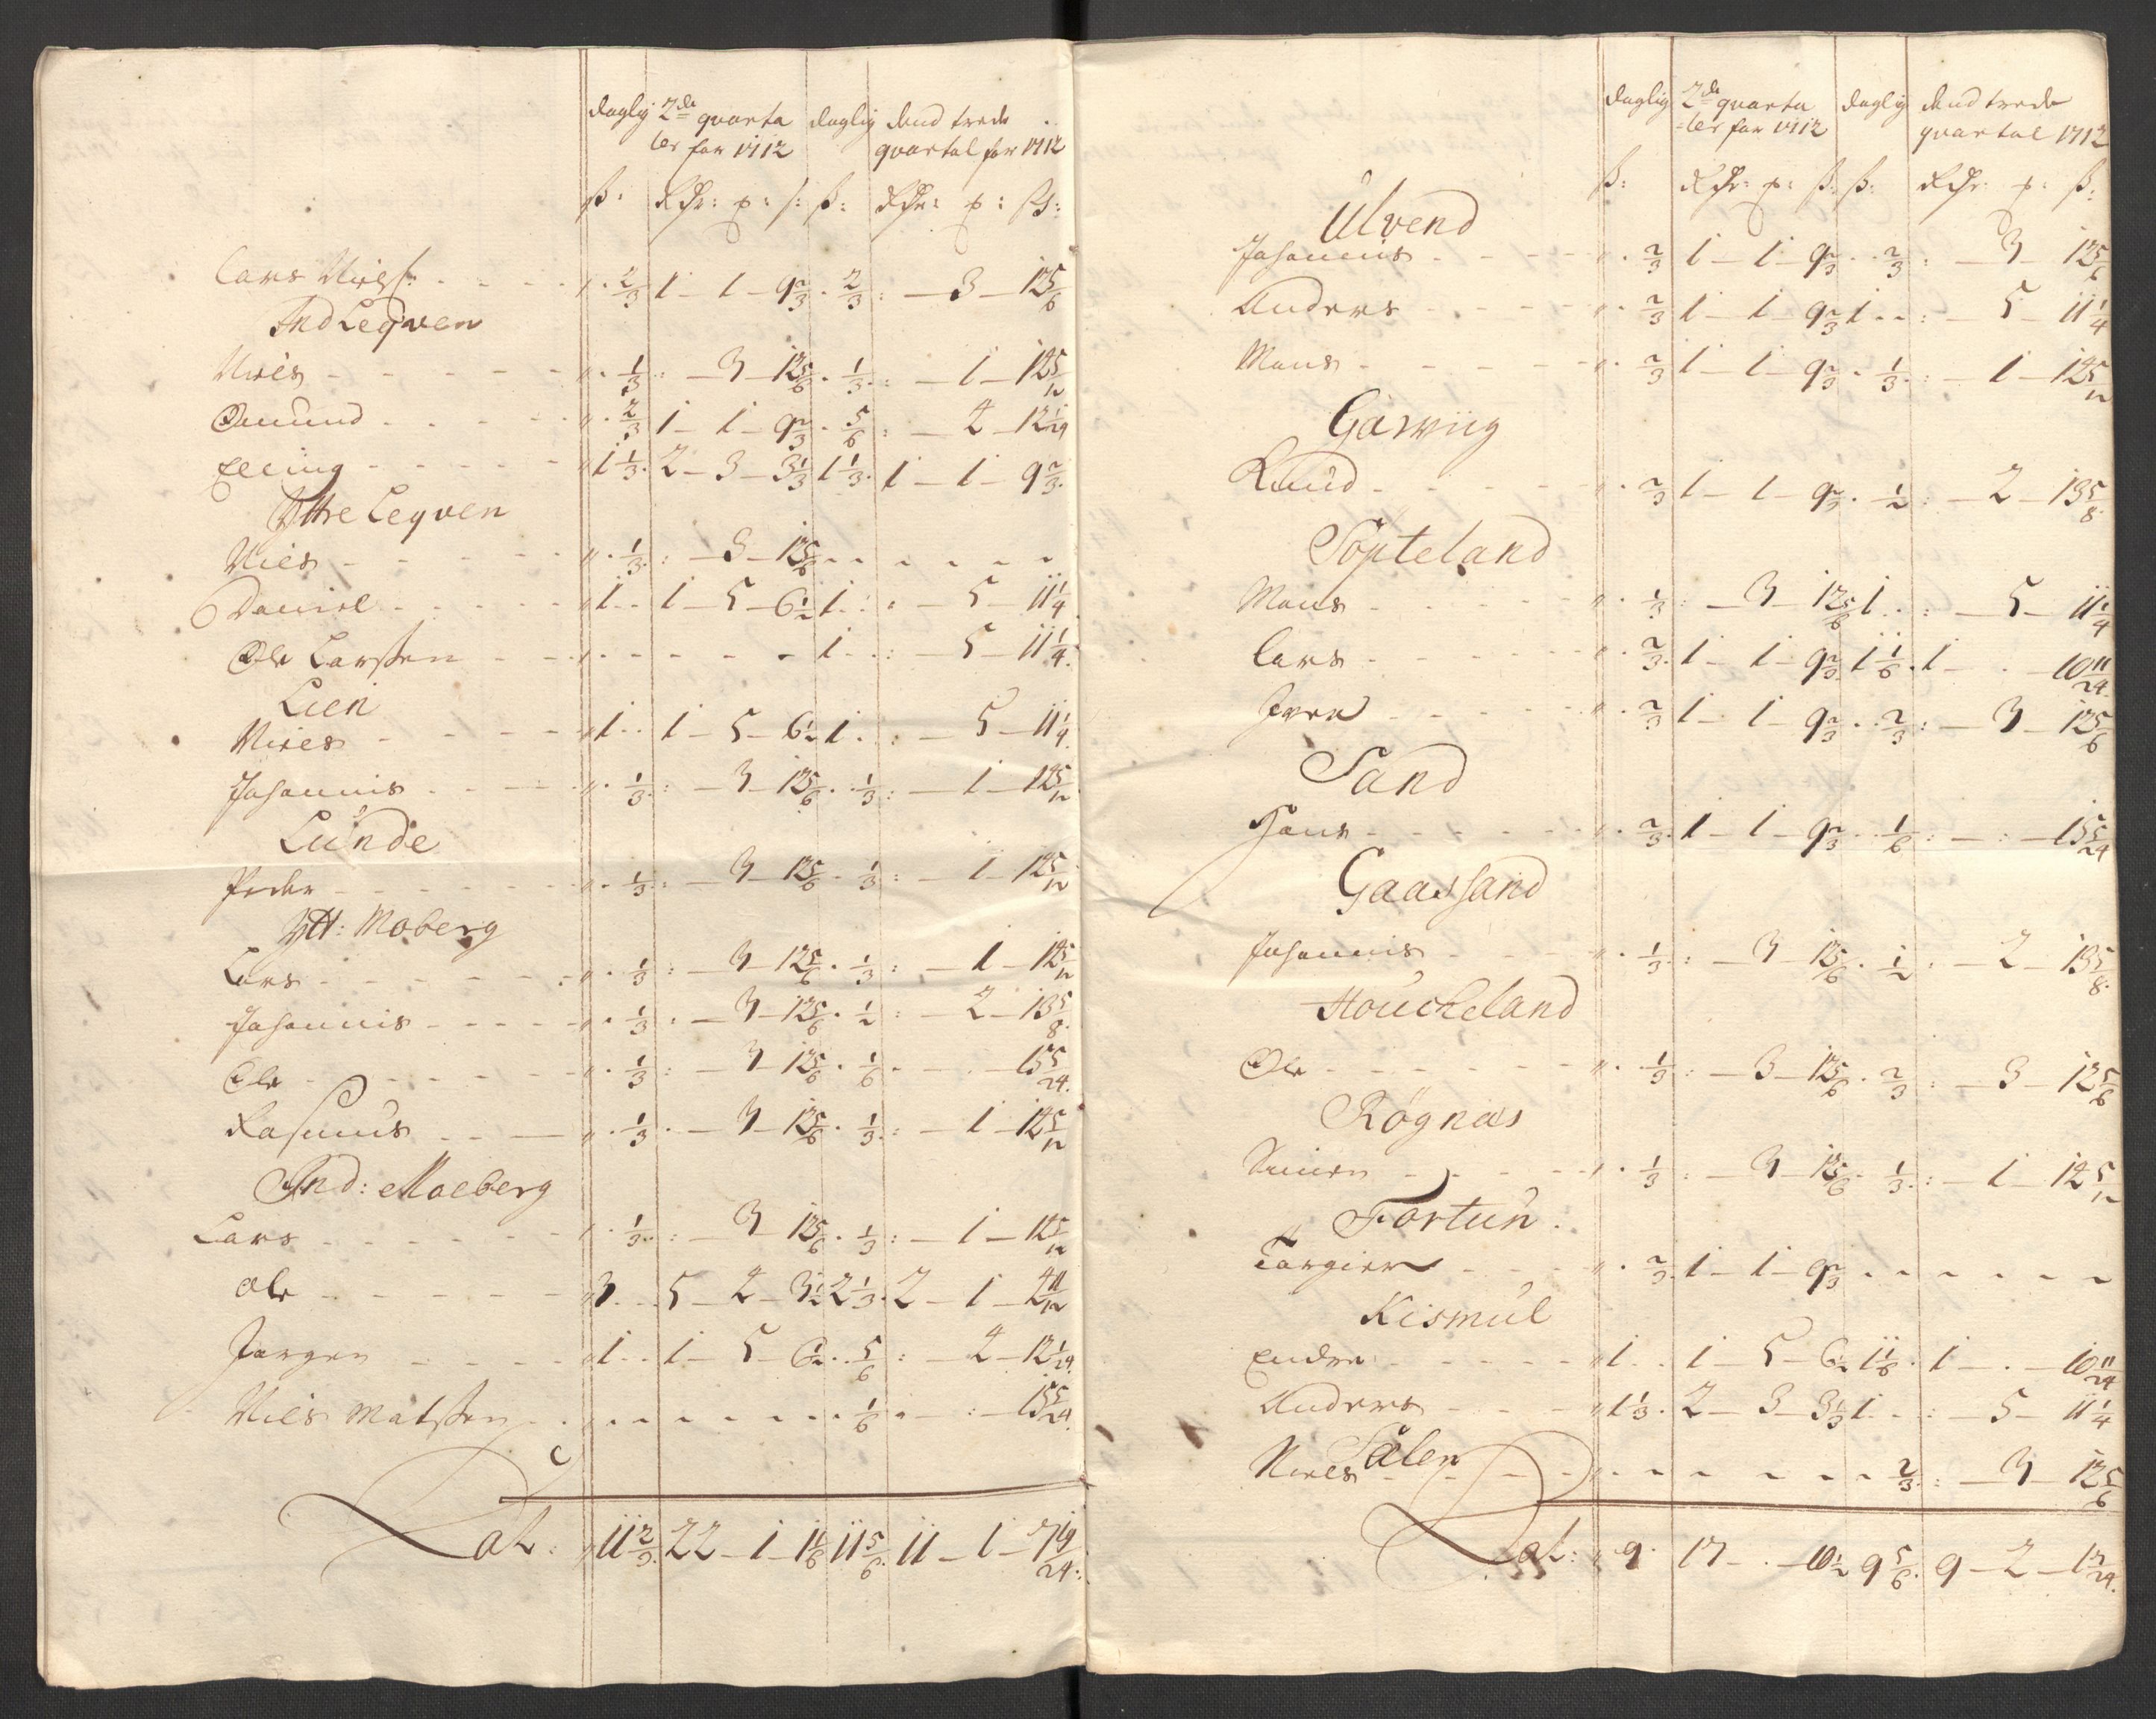 daglig 2de quarta daglig dend trede
ler for 1712 quartal for 1712
ß: Rdr: p: ß: ß: Rdr: p: ß:
Lars Nielß: - - - " 2/3 1 - 1 - 9 2/3 . 2/3 : - 3 - 12 5/6
Ind Leqven
Niels - - - " 1/3 : - 3 - 12 5/6 . 1/3 : - 1 - 14 5/12
Omund - - - " 2/3 1 - 1 - 9 2/3 . 5/6 : - 4 - 12 1/24
Elling - - - " 1 1/3 2 - 3 - 3 1/3 1 1/3 1 - 1 - 9 2/3
Ytre Leqven
Niels - - - " 1/3 : - 3 - 12 5/6 - - - -
Daniel - - - " 1 . . 1 - 5 - 6 1/2 1 . . : - 5 - 11 1/4
Ole Larßen - - - - - - 1 . . : - 5 - 11 1/4
Lien
Niels - - - " 1 . . 1 - 5 - 6 1/2 1 . . : - 5 - 11 1/4
Johannis - - - " 1/3 : - 3 - 12 5/6 . 1/3 : - 1 - 14 5/12
Lunde
Peder - - - " 1/3 : - 3 - 12 5/6 . 1/3 : - 1 - 14 5/12
Ytt: Moberg
Lars - - - " 1/3 : - 3 - 12 5/6 . 1/3 : - 1 - 14 5/12
Johannis - - - " 1/3 : - 3 - 12 5/6 . 1/2 : - 2 - 13 5/8
Ole - - - " 1/3 : - 3 - 12 5/6 . 1/6 - - 15 5/24
Rasmus - - - " 1/3 : - 3 - 12 5/6 . 1/3 : - 1 - 14 5/12
Ind: Moeberg
Lars - - - " 1/3 : - 3 - 12 5/6 . 1/3 : - 1 - 14 5/12
Ole - - - " 3 . . 5 - 4 - 3 1/2 2 1/3 2 - 1 - 4 11/12
Jørgen - - - " 1 . . 1 - 5 - 6 1/2 . 5/6 : - 4 - 12 1/24
Niels Matßen - - - - - - 1/6 - : - 15 5/24
Lat: " 11 2/3 22 - 1 - 1 1/6 11 5/6 11 - 1 - 7 19/24
daglig 2de quarta daglig dend trede
ler for 1712 quartal 1712
ß: Rdr: p: ß: ß: Rdr: p: ß:
Ulvend
Johannis - - - " 2/3 1 - 1 - 9 2/3 . 2/3 : - 3 - 12 5/6
Anders - - - " 2/3 1 - 1 - 9 2/3 1 . . : - 5 - 11 1/4
Mons - - - " 2/3 1 - 1 - 9 2/3 . 1/3 : - 1 - 14 5/12
Gårviig
Knud - - - " 2/3 1 - 1 - 9 2/3 . 1/2 : - 2 - 13 5/8
Søpteland
Mons - - - " 1/3 : - 3 - 12 5/6 1 . . : - 5 - 11 1/4
Lars - - - " 2/3 1 - 1 - 9 2/3 1 1/6 1 - . - 10 11/24
Iver - - - " 2/3 1 - 1 - 9 2/3 . 2/3 : - 3 - 12 5/6
Sand
Hans - - - " 2/3 1 - 1 - 9 2/3 . 1/6 : - : - 15 5/24
Gaassand
Johannis - - - " 1/3 : - 3 - 12 5/6 . 1/2 : - 2 - 13 5/8
Houcheland
Ole - - - " 1/3 : - 3 - 12 5/6 . 2/3 : - 3 - 12 5/6
Røgnæs
" 1/3 : - 3 - 12 5/6 . 1/3 : - 1 - 14 5/12
Fortun
Torgier - - - " 2/3 1 - 1 - 9 2/3 - - - - -
Kismul
Endre - - - " 1 . . 1 - 5 - 6 1/2 1 1/6 1 - . - 10 11/24
Anders - - - " 1 1/3 2 - 3 - 3 1/3 1 . . : - 5 - 11 1/4
Sælen
Niels - - - - - - 2/3 : - 3 - 12 5/6
Lat: " 9 . 17 - . - 10 1/2 9 5/6 9 - 2 - 1 17/24